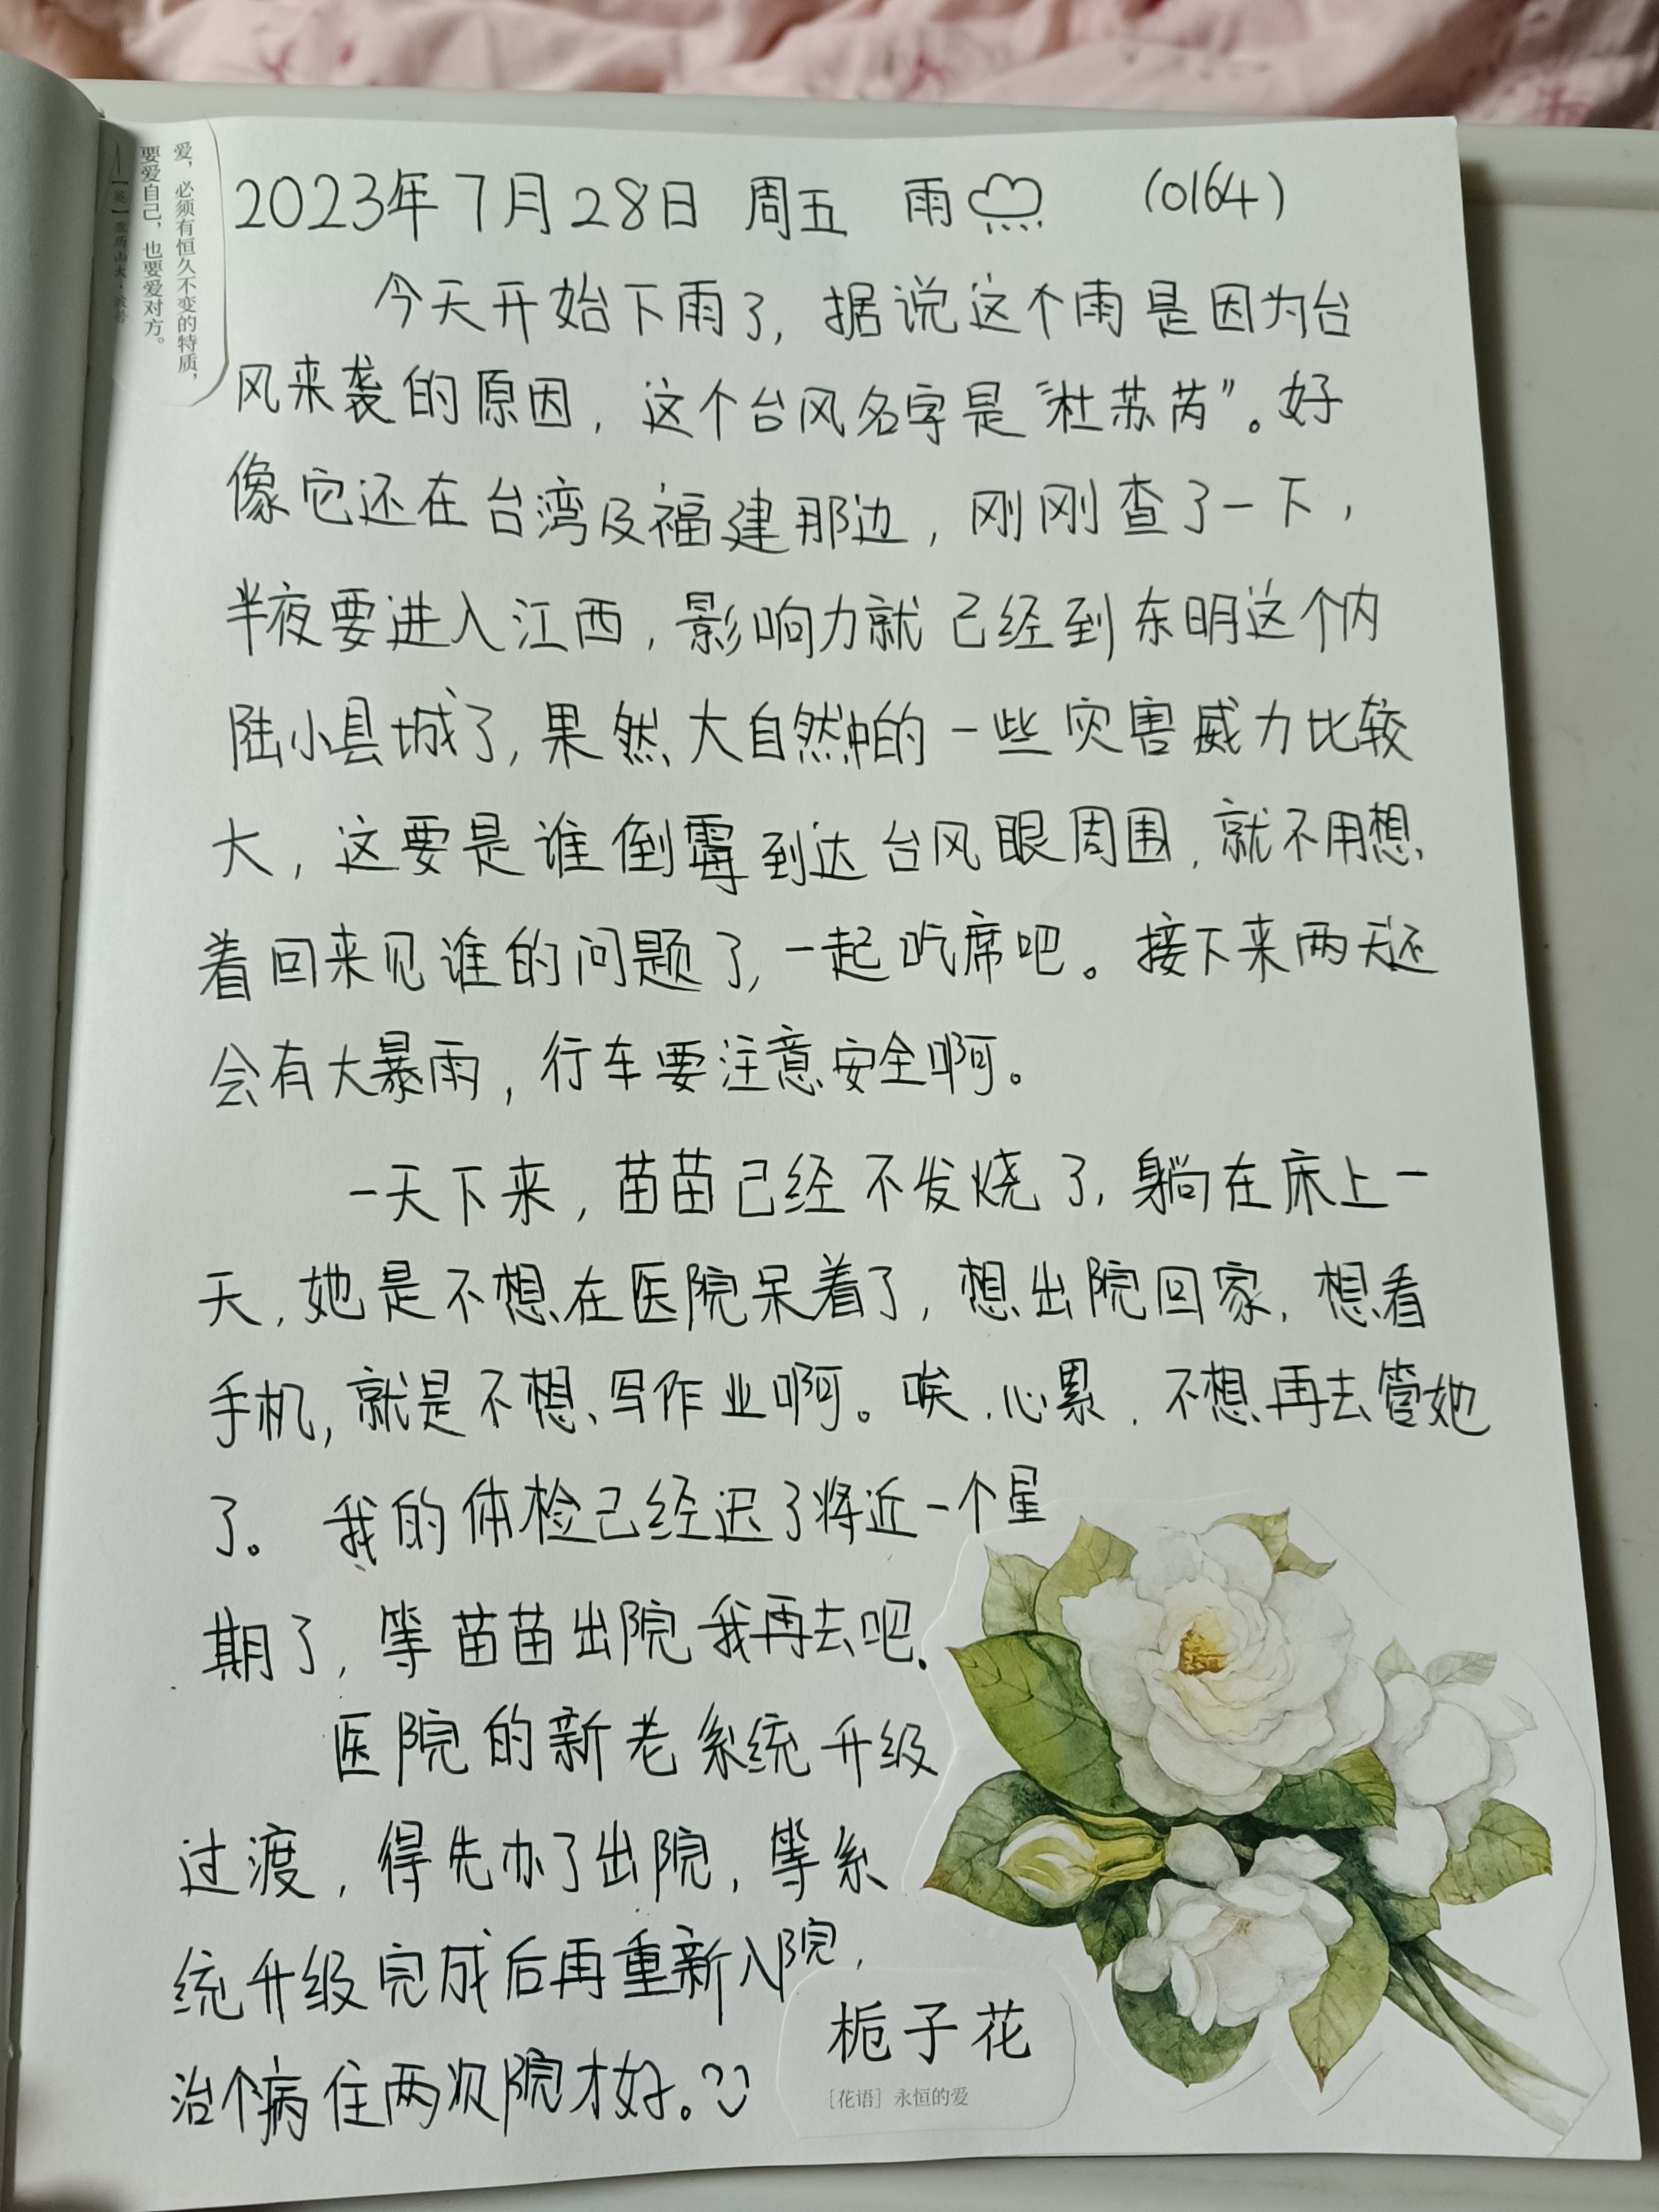 爱，必须有恒久不变的特质，
要爱自己，也要爱对方。
——［英］亚历山大·波普
2023年7月28日 周五 雨 (0164)
今天开始下雨了，据说这个雨是因为台
风来袭的原因，这个台风名字是“杜苏芮”。好
像它还在台湾及福建那边，刚刚查了一下，
半夜要进入江西，影响力就已经到东明这个内
陆小县城了，果然大自然中的一些灾害威力比较
大，这要是谁倒霉到达台风眼周围，就不用想
着回来见谁的问题了，一起吃席吧。接下来两天还
会有大暴雨，行车要注意安全啊。
一天下来，苗苗已经不发烧了，躺在床上一
天，她是不想在医院呆着了，想出院回家，想看
手机，就是不想写作业啊。唉，心累，不想再去管她
了。我的体检已经迟了将近一个星
期了，等苗苗出院我再去吧。
医院的新老系统升级
过渡，得先办了出院，等系
统升级完成后再重新入院，
治个病住两次院才好。
栀子花
［花语］永恒的爱